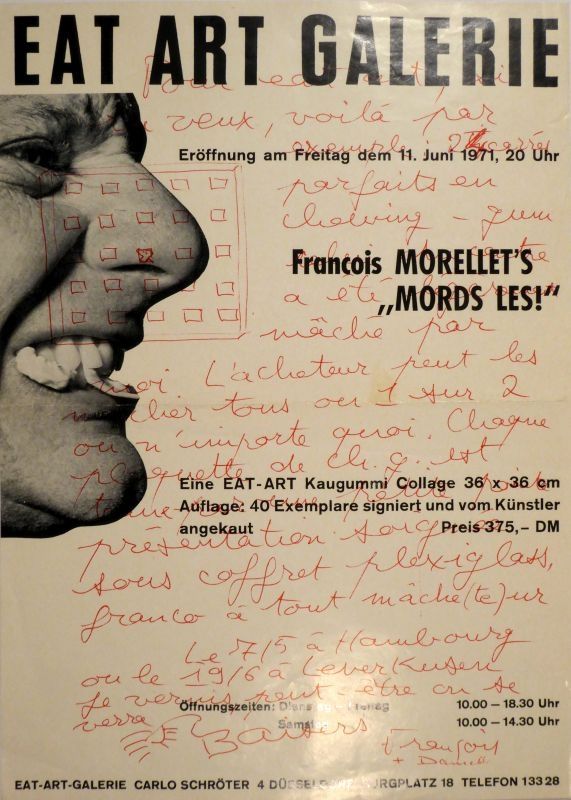 EAT ART GALERIE
Pour eat art, si
tu veux, voilà par
exemple 25 carrés
Eröffnung am Freitag dem 11. Juni 1971, 20 Uhr
parfaits en
chewing-gum
Francois MORELLET'S
„MORDS LES!"
a été légèrement
mâché par
moi L'acheteur peut les
mâcher tous ou 1 sur 2
ou n'importe quoi. Chaque
plaquette de ch. g. est
Eine EAT-ART Kaugummi Collage 36 x 36 cm
tenue par une petite pointe
Auflage: 40 Exemplare signiert und vom Künstler
angekaut Preis 375,- DM
présentation soignée
sous coffret plexiglass,
franco à tout mâche(te)ur
Le 7/5 à Hambourg
ou le 19/6 à Leverkusen
je verrais, peut-être on se
Öffnungszeiten: Dienstag - Freitag 10.00 – 18.30 Uhr
verra
Samstag 10.00 – 14.30 Uhr
Baisers
François
+ Danielle
EAT-ART-GALERIE CARLO SCHRÖTER 4 DÜSSELDORF BURGPLATZ 18 TELEFON 133 28